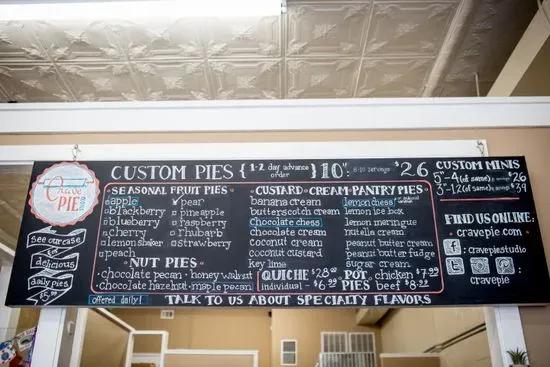 CUSTOM PIES { 1-2 day advance order } 10": 8-10 servings $26
Crave PIE
see our case for
delicious
daily pies
SEASONAL FRUIT PIES
apple
blackberry
blueberry
cherry
lemon shaker
peach
pear
pineapple
raspberry
rhubarb
strawberry
NUT PIES
chocolate pecan · honey walnut
chocolate hazelnut · maple pecan
offered daily!
CUSTARD · CREAM · PANTRY PIES
banana cream
butterscotch cream
Chocolate chess
chocolate cream
coconut cream
coconut custard
key lime
lemon chess
lemon ice box
lemon meringue
nutella cream
peanut butter cream
peanut butter fudge
sugar cream
QUICHE $28.00
individual - $6.99
POT PIES
chicken $7.99
beef $8.99
TALK TO US ABOUT SPECIALTY FLAVORS
CUSTOM MINIS
5"-4 (of same) $26
3"-12 (of same) $39
FIND US ONLINE:
cravepie.com
cravepiestudio
cravepie